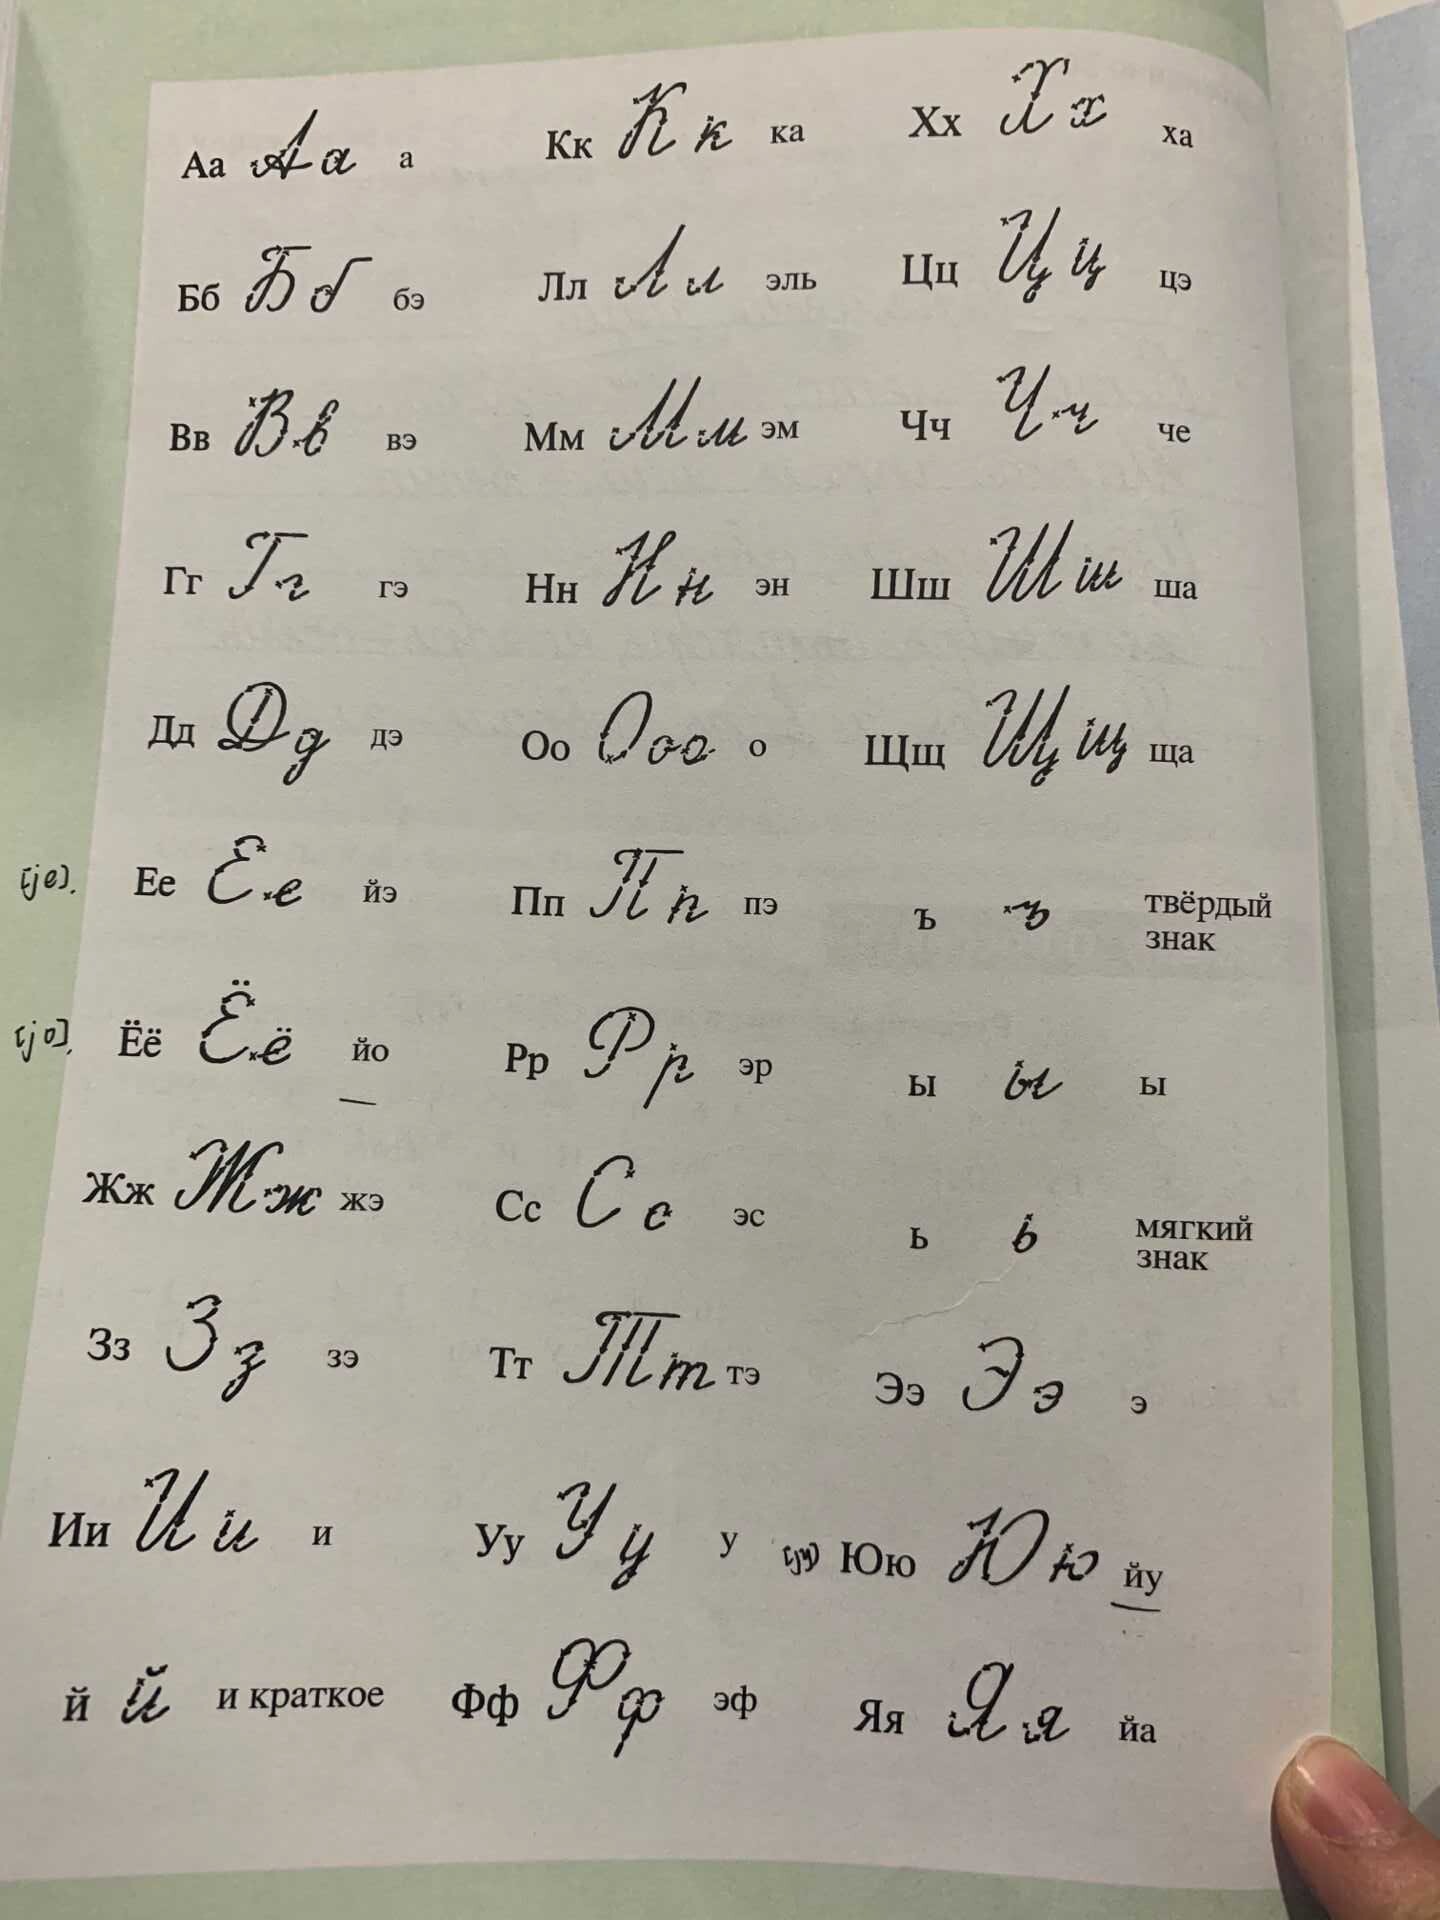 Аа Аа а
Бб Бб бэ
Вв Вв вэ
Гг Гг гэ
Дд Дд дэ
[je]. Ее Ее йэ
[jo]. Ёё Ёё йо
Жж Жж жэ
Зз Зз зэ
Ии Ии и
й й и краткое
Кк Кк ка
Лл Лл эль
Мм Мм эм
Нн Нн эн
Оо Ооо о
Пп Пп пэ
Рр Рр эр
Сс Сс эс
Тт Тт тэ
Уу Уу у
Фф Фф эф
Хх Хх ха
Цц Цц цэ
Чч Чч че
Шш Шш ша
Щщ Щщ ща
ъ ъ твёрдый
знак
ы ы ы
ь ь мягкий
знак
Ээ Ээ э
Юю Юю йу
Яя Яя йа